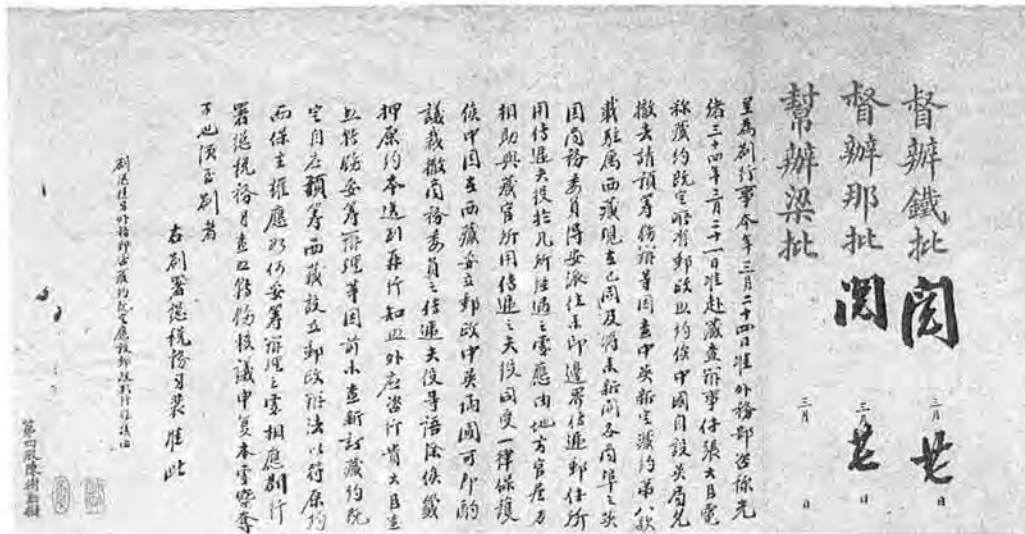 督辦鐵批 閱 三月 日
督辦那批 閱 三月 日
幫辦梁批 三月 日
呈為劄行事今年三月二十四日准外務部咨稱光
緒三十四年三月二十一日准赴藏查辦事件張大臣電
稱藏約既定所有郵政照約俟中國自設英局允
撤去請預籌飭辦等因查中英新定藏約第八款
載駐屬西藏現在已開及將來新開各商埠之英
國商務委員得妥派往來印邊界傳遞郵件所
用傳遞夫役於凡所經過之處應由地方官屋力
相助與藏官所用傳遞之夫役同受一律保護
俟中國在西藏妥立郵政中英兩國可即酌
議裁撤商務委員之傳遞夫役等語除俟鐵
押原約本送到再行知照外應咨行貴大臣查
照飭妥籌辦理等因前來查新訂藏約既
定自應預籌西藏設立郵政辦法以符原約
而保主權應如何妥籌辦理之處相應劄行
署總稅務司查照飭核議申复本處察奪
可也須至劄者
右劄署總稅務司裴准此
劄准外務部咨藏約既定應設郵政
第四股陳樹